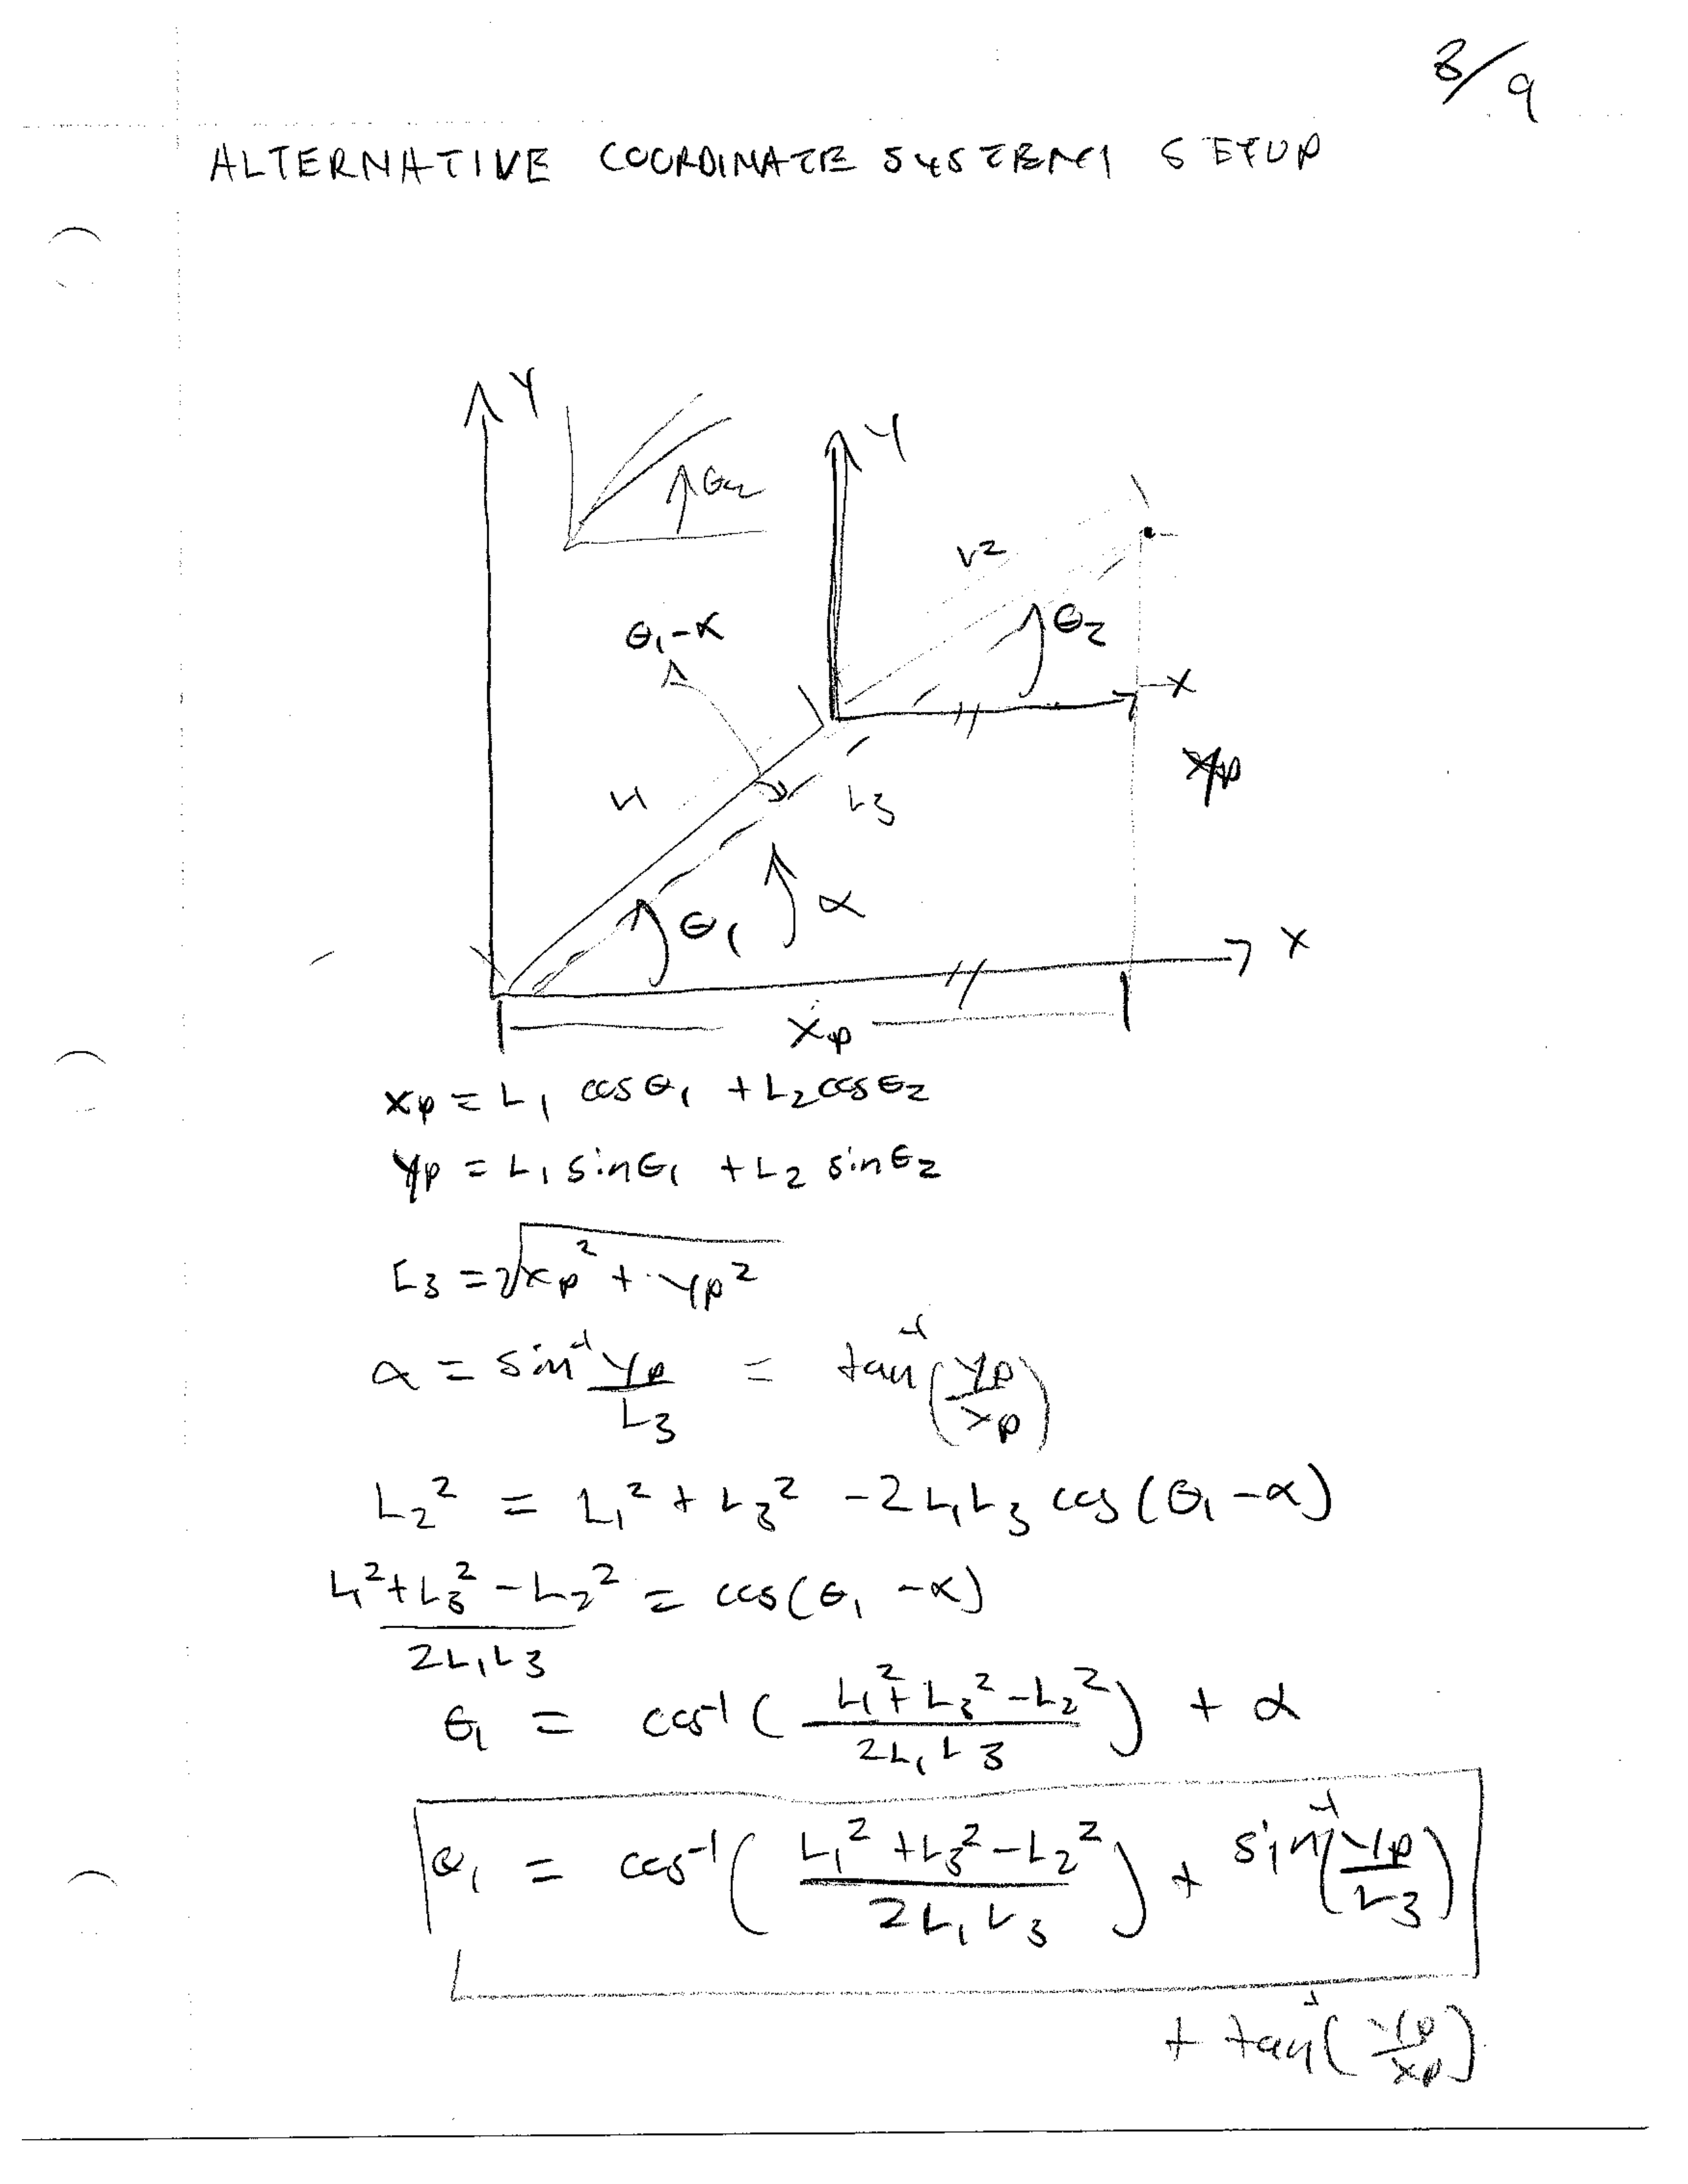 8/9
ALTERNATIVE COORDINATE SYSTEM SETUP
Y
θ2
Y
L2
θ2
θ1-α
X
yp
L1
L3
α
θ1
X
xp
xp = L1 cosθ1 + L2 cosθ2
yp = L1 sinθ1 + L2 sinθ2
L3 = √(xp² + yp²)
α = sin⁻¹ yp/L3 = tan⁻¹(yp/xp)
L2² = L1² + L3² - 2L1L3 cos(θ1 - α)
L1² + L3² - L2² / 2L1L3 = cos(θ1 - α)
θ1 = cos⁻¹( L1² + L3² - L2² / 2L1L3 ) + α
θ1 = cos⁻¹( L1² + L3² - L2² / 2L1L3 ) + sin⁻¹(yp/L3)
+ tan⁻¹(yp/xp)